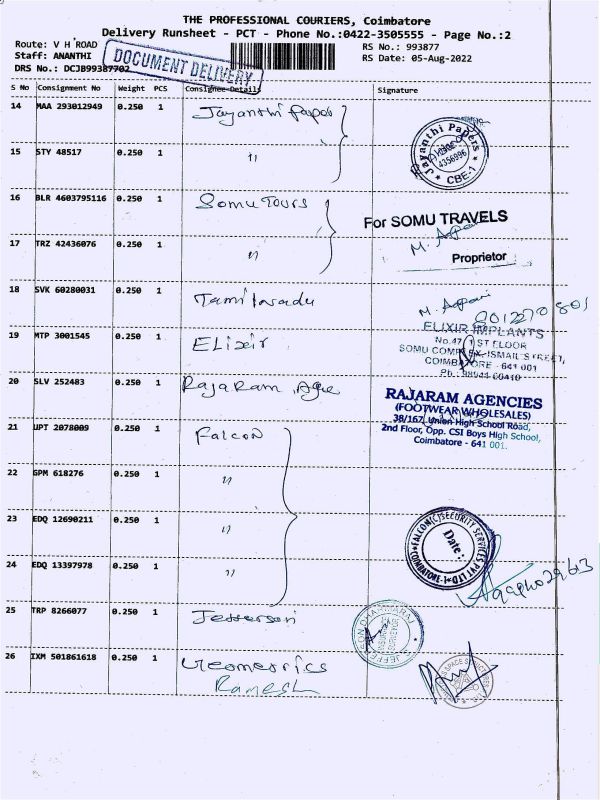 THE PROFESSIONAL COURIERS, Coimbatore
Delivery Runsheet - PCT - Phone No.:0422-3505555 - Page No.:2
Route: V H ROAD
RS No.: 993877
Staff: ANANTHI
RS Date: 05-Aug-2022
DRS No.: DCJB99387702
DOCUMENT DELIVERY
S No Consignment No Weight PCS Consignee Details Signature
14 MAA 293012949 0.250 1 Jayanthi Papers
Jayanthi Papers
4356996
CBE-1
15 STY 48517 0.250 1 "
16 BLR 4603795116 0.250 1 Somu Tours
For SOMU TRAVELS
17 TRZ 42436076 0.250 1 "
Proprietor
18 SVK 60280031 0.250 1 Tamilnadu
19 MTP 3001545 0.250 1 Elixir
ELIXIR IMPLANTS
No.47 1 ST FLOOR
SOMU COMPLEX, ISMAIL STREET,
COIMBATORE - 641 001
20 SLV 252483 0.250 1 Rajaram Age
RAJARAM AGENCIES
(FOOTWEAR WHOLESALES)
38/167, Union High School Road,
2nd Floor, Opp. CSI Boys High School,
Coimbatore - 641 001.
21 UPT 2078009 0.250 1 Falcon
22 GPM 618276 0.250 1 "
23 EDQ 12690211 0.250 1 "
FALCON(C)SECURITY SERVICES PVT LTD
COIMBATORE-1
Date:
24 EDQ 13397978 0.250 1 "
25 TRP 8266077 0.250 1 Jefferson
JEFFERSON DHARMARAJ
SURVEYOR
26 IXM 501861618 0.250 1 Geometrics
Ramesh